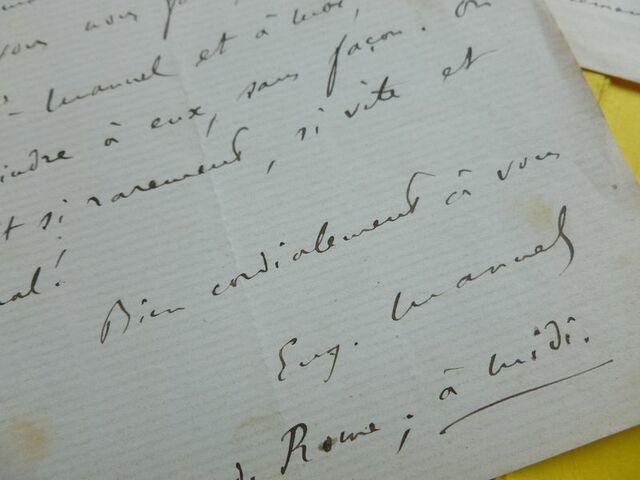 vous avons fa
Manuel et à moi,
indre à eux, sans façon. On
t si rarement, si vite et
mal!
Bien cordialement à vous
Eug. Manuel
de Rome; à midi.